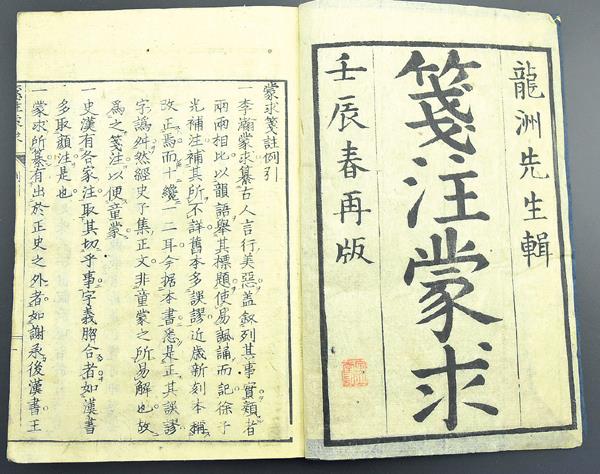 龍洲先生輯
箋注蒙求
壬辰春再版
蒙求箋註例引
一李瀚蒙求纂古人言行美惡盖叙列其事實類者
兩兩相比以韻語舉其標題使易諷誦而記徐子
光補注補其所不詳舊本多誤謬近歳新刻本稱
改正焉而十纔一二耳今据本書悉是正其誤謬
字譌舛然經史子集正文非童蒙之所易解也故
爲之箋注以便童蒙
一史漢有各家注取其切乎事字義脗合者如漢書
多取顔注是也
一蒙求所纂有出於正史之外者如謝承後漢書王